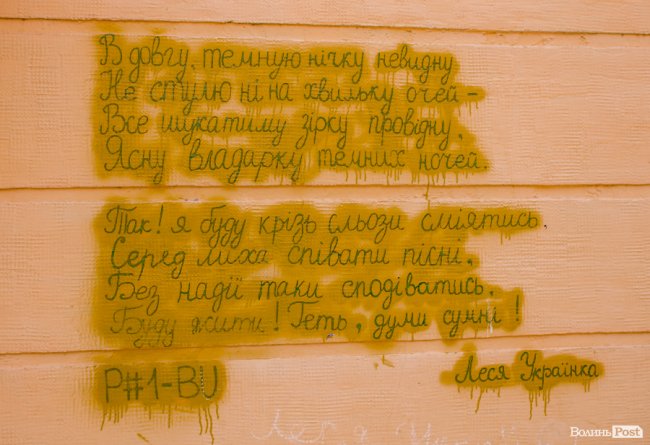 В довгу, темную нічку невидну
Не стулю ні на хвильку очей –
Все шукатиму зірку провідну,
Ясну владарку темних ночей.
Так! я буду крізь сльози сміятись,
Серед лиха співати пісні,
Без надії таки сподіватись,
Буду жити! Геть, думи сумні!
P#1-BU
Леся Українка
Волинь Post